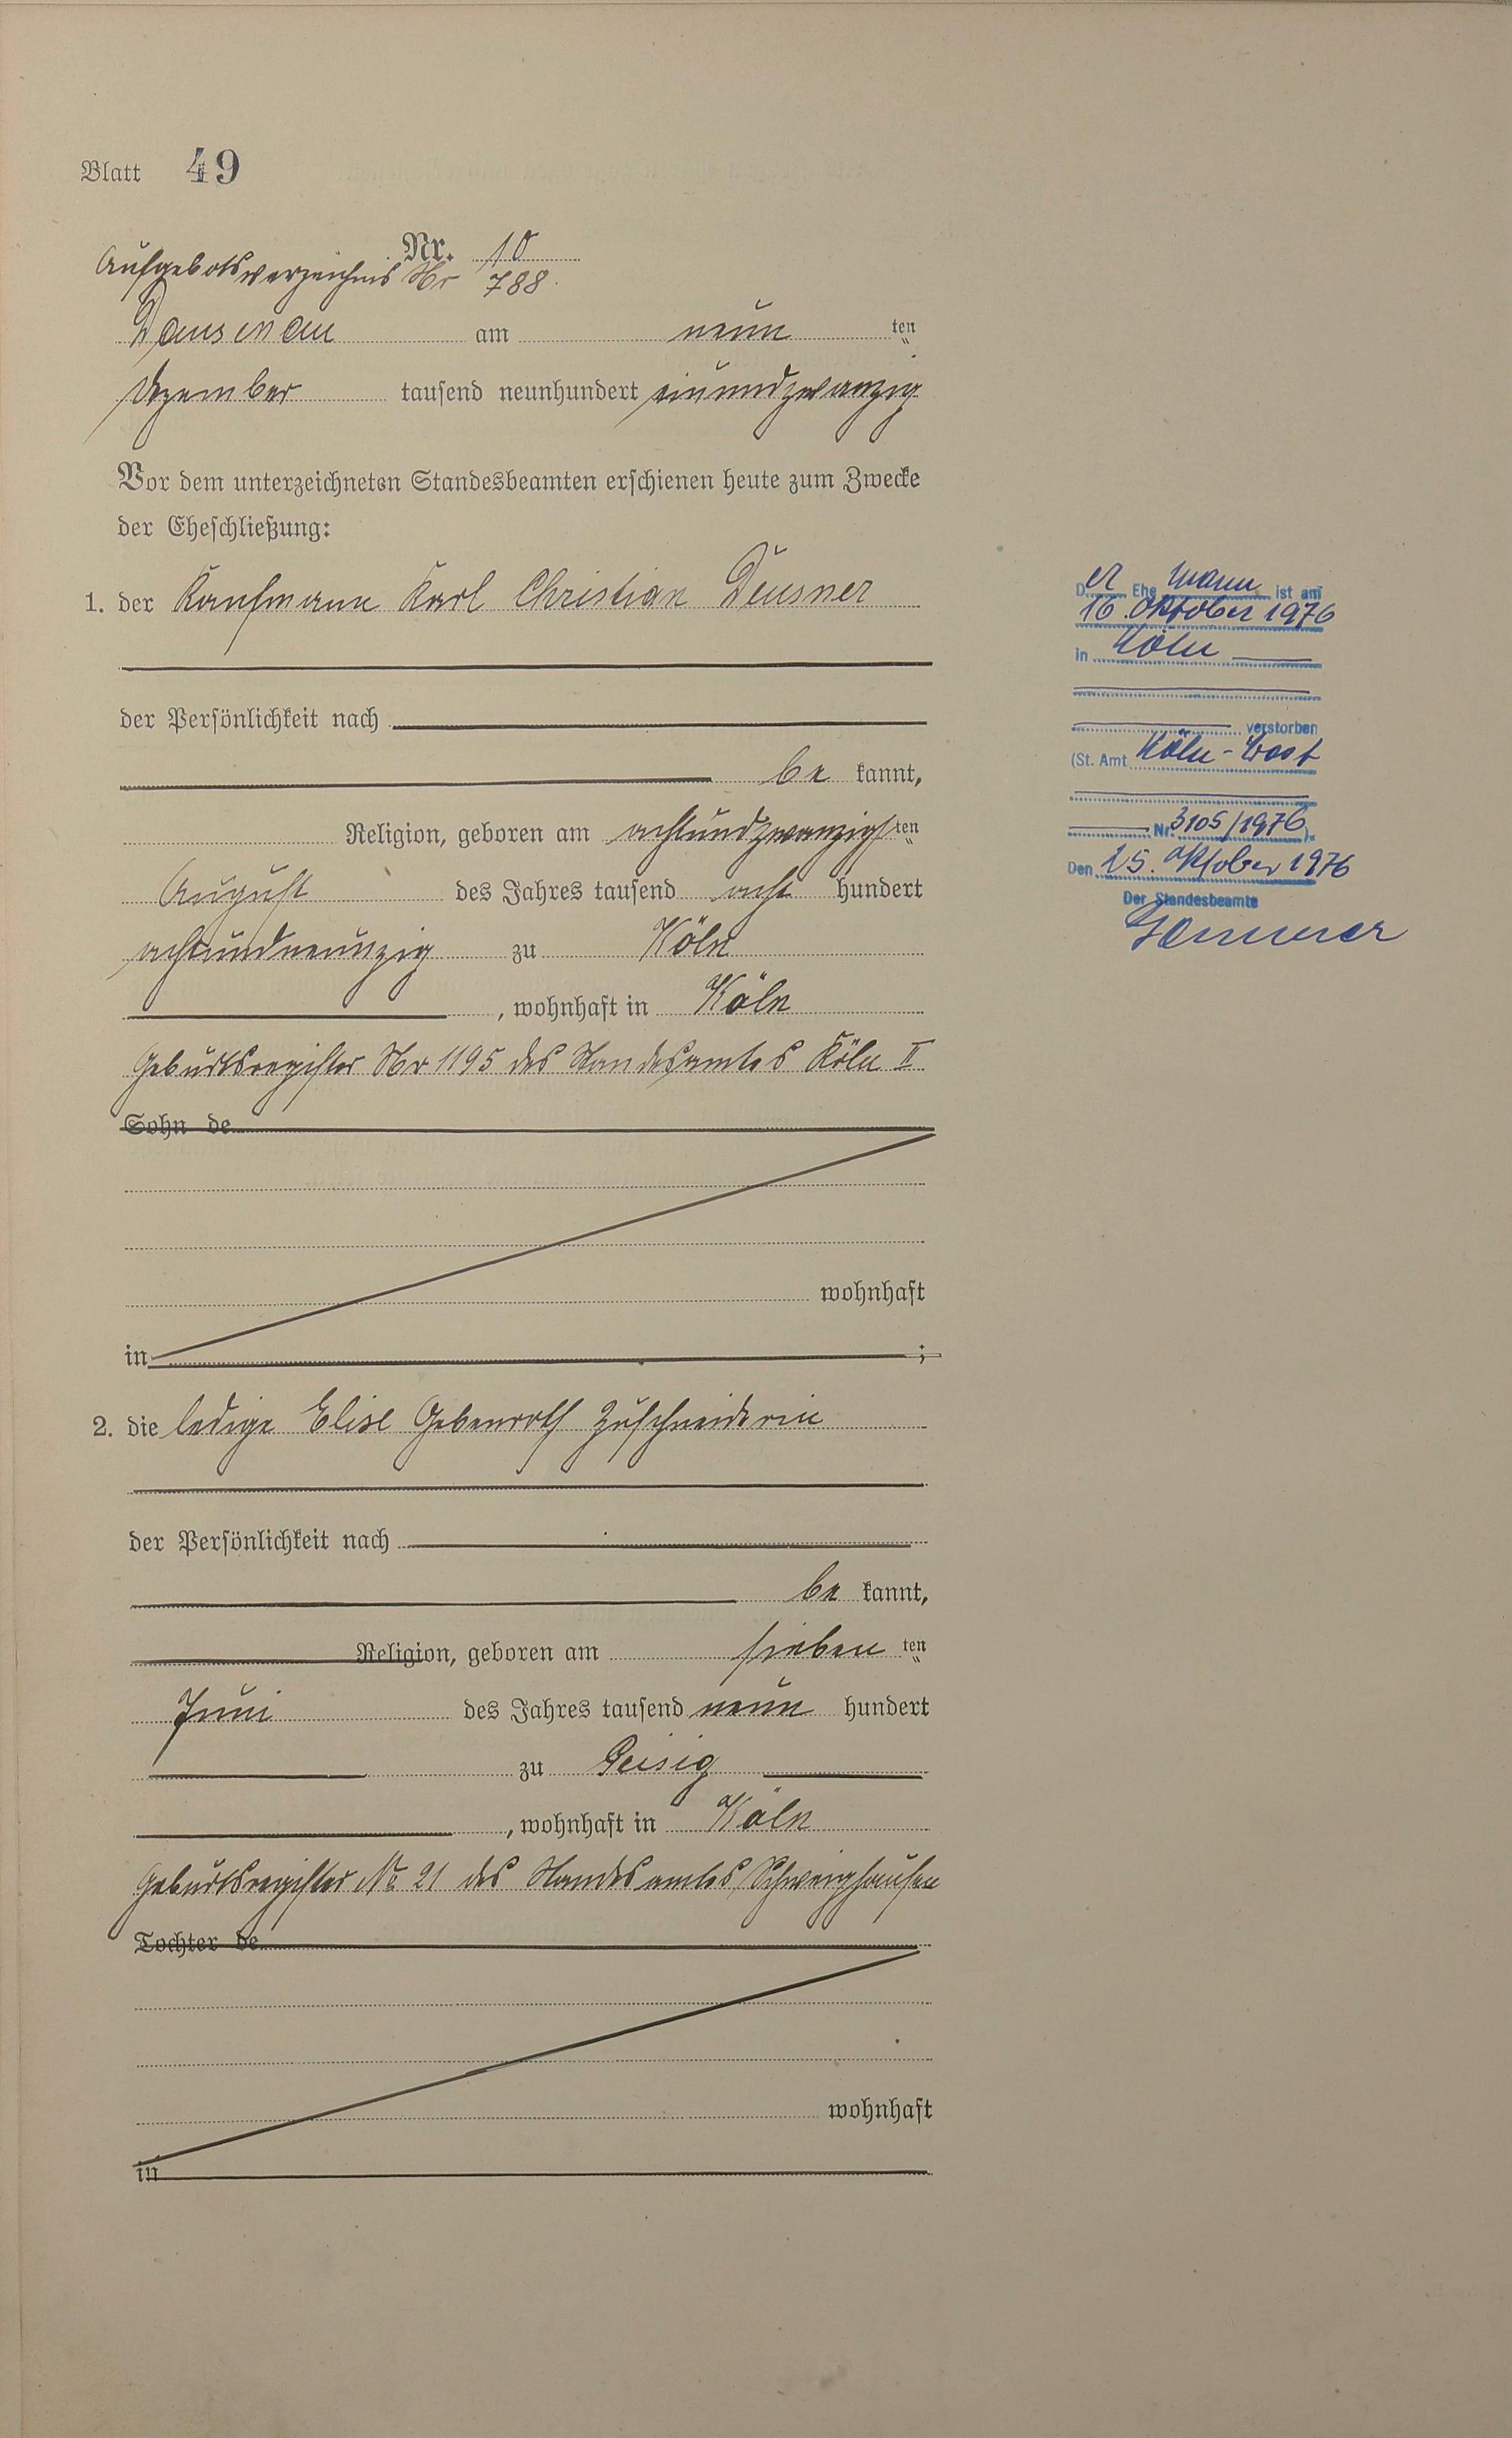 Blatt 49
Nr. 10
Aufgebotsverzeichnis Nr 788.
Dausenau am neun ten
Dezember tausend neunhundert einundzwanzig
Vor dem unterzeichneten Standesbeamten erschienen heute zum Zwecke
der Eheschließung:
1. der Kaufmann Karl Christian Deusner
der Persönlichkeit nach
be kannt,
Religion, geboren am achtundzwanzigs ten
August des Jahres tausend acht hundert
achtundneunzig zu Köln
, wohnhaft in Köln
Geburtsregister Nr 1195 des Standesamtes Köln II
Sohn de
wohnhaft
in ;
2. die ledige Elise Gebenroth Zuschneiderin
der Persönlichkeit nach
be kannt,
Religion, geboren am sieben ten
Juni des Jahres tausend neun hundert
zu Geisig
, wohnhaft in Köln
Geburtsregister No 21 des Standesamtes Schweighausen
Tochter de
wohnhaft
in
Der Ehemann ist am
16. Oktober 1976
in Köln
verstorben
(St. Amt Köln-West
Nr. 3105/1976).
Den 25. Oktober 1976
Der Standesbeamte